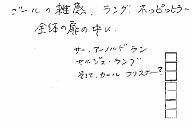 ゴールの雑感、ラング、ホッピッヒラー
全体の扉の中に、
サー・アーノルド ラン
セルジュ・ラング
そして、カール
?